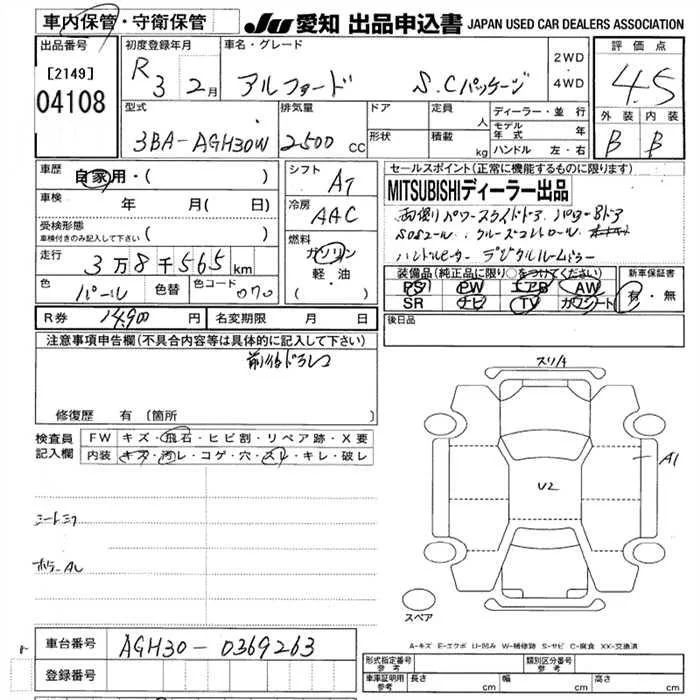 車内保管・守衛保管
JU 愛知 出品申込書 JAPAN USED CAR DEALERS ASSOCIATION
出品番号
[2149]
04108
初度登録年月
R 3 2月
車名・グレード
アルファード S.Cパッケージ
2WD
・
4WD
評価点
4.5
外装 内装
B B
型式
3BA-AGH30W
排気量
2500 CC
ドア
形状
定員 人
積載 kg
ディーラー・並行
モデル年式 年
ハンドル 左・右
車歴 自家用・( )
車検 年 月( 日)
受検形態
車検付きのみ記入して下さい ( )
走行 3万8千565km
色 パール 色替 色コード 070
シフト AT
冷房 AAC
燃料
ガソリン
軽・油
( )
R券 14,900 円 名変期限 月 日
セールスポイント(正常に機能するものに限ります)
MITSUBISHIディーラー出品
両側パワースライドドア パワーBドア
SOSコール クルーズコントロール
ハンドルヒーター デジタルルームミラー
装備品(純正品に限り○をつけてください)
PS PW エアB AW
SR ナビ TV カワシート
新車保証書
有・無
後日品
注意事項申告欄(不具合内容等は具体的に記入して下さい)
前後ドラレコ
修復歴 有〔箇所
検査員
記入欄
FW キズ・飛石・ヒビ割・リペア跡・X要
内装 キズ・汚レ・コゲ・穴・スレ・キレ・破レ
シートミク
スリキ
A1
U2
スペア
A-キズ E-エクボ U-凹み W-補修跡 S-サビ C-腐食 XX-交換済
車台番号 AGH30-0369263
登録番号
形式指定番号
参考
類別区分番号
参考
車庫証明用
参考
長さ cm 幅 cm 高さ cm